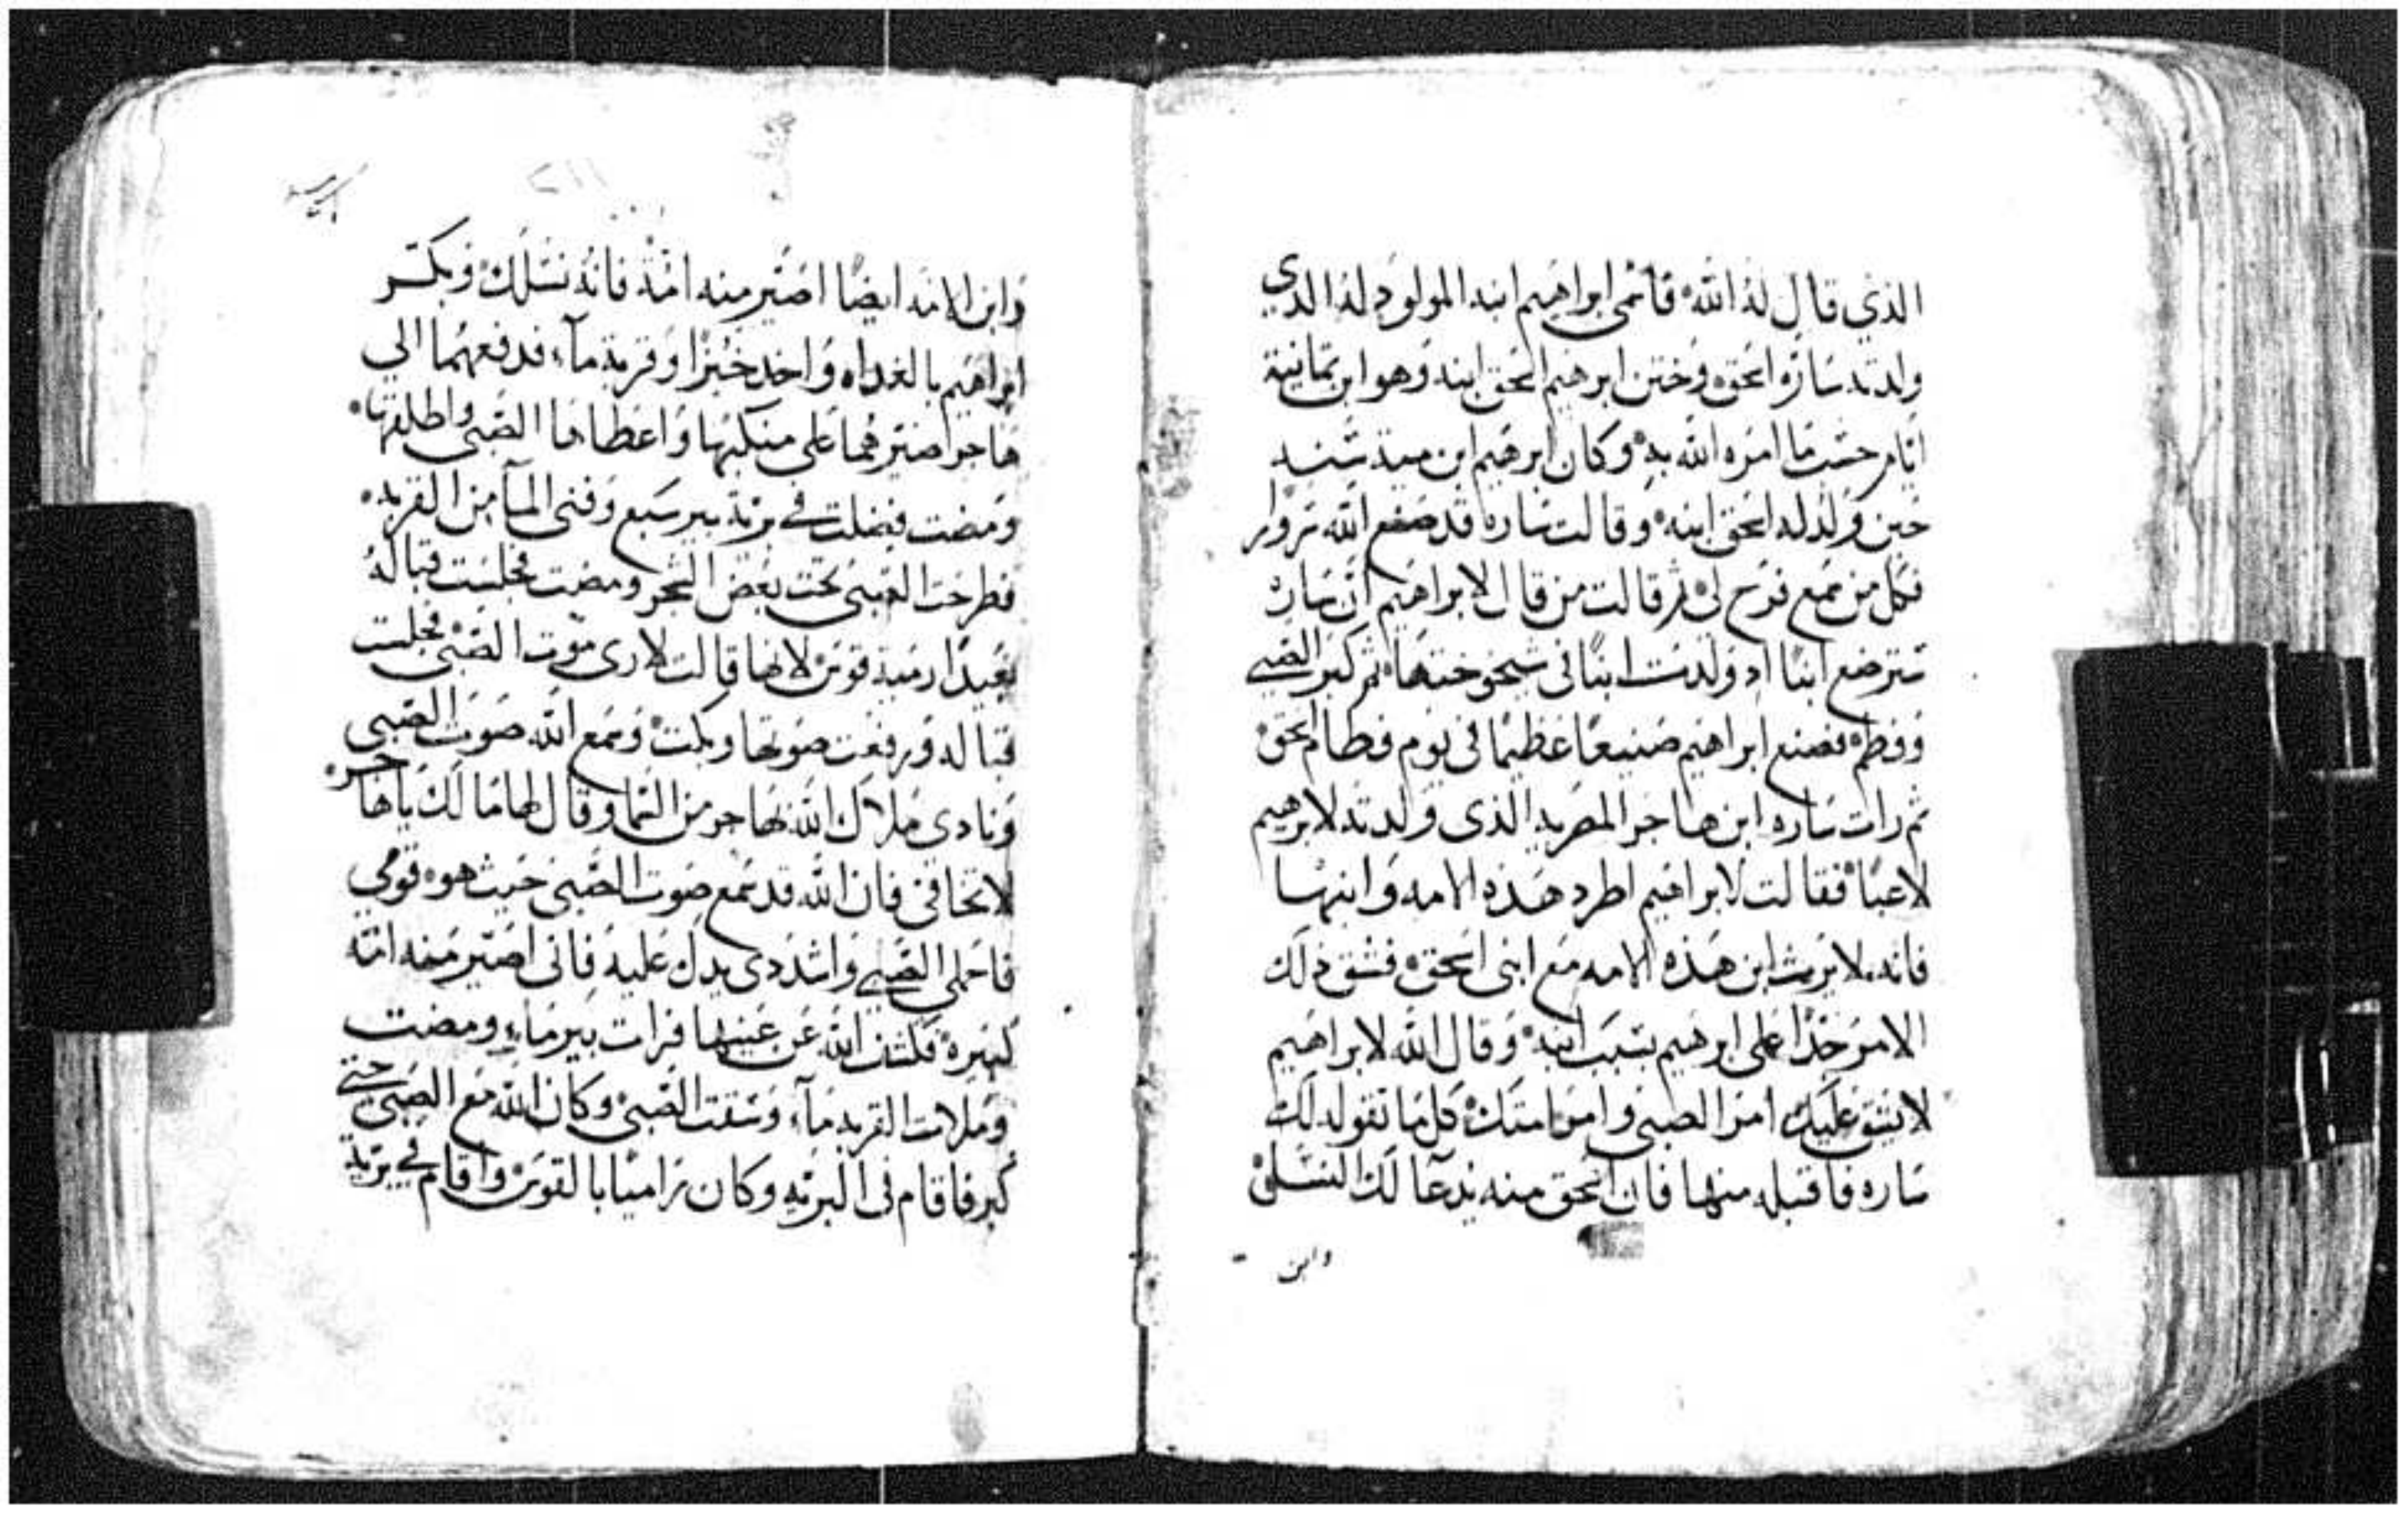 الذي قال له الله فاسمى ابراهيم ابنه المولود له الدي
ولدته ساره اسحق وختن ابرهيم اسحق ابنه وهو ابن ثمانية
ايام حسب ما امره الله به وكان ابرهيم ابن مية سنه
حين ولد له اسحق ابنه وقالت ساره قد صنع الله
فكل من سمع فرح لي ثم قالت من قال لابراهيم ان ساره
سترضع ابنا اد ولدت ابنا في شيخوختها ثم كبر الصبي
وفطم فصنع ابراهيم صنيعا عظيما في يوم فطام اسحق
ثم رات ساره ابن هاجر المصريه الذى ولدته لابرهيم
لاعبا فقالت لابراهيم اطرد هذه الامه وابنها
فانه لا يرث ابن هذه الامه مع ابنى اسحق فشق ذلك
الامر جدا على ابرهيم بسبب ابنه وقال الله لابراهيم
لا يشق عليك امر الصبي وامر امتك كل ما تقوله لك
ساره فاقبله منها فان اسحق منه يدعا لك النسل
وابن
٢١١
وابن الامه ايضا اصير منه امة فانه نسلك وبكر
ابراهيم بالغداه واخد خبزا وقربة مآء فدفعهما الي
هاجر اصيرهما على منكبها واعطاها الصبي واطلقها
ومضت فضلت في برية بير سبع وفني المآ من القربه
فطرحت الصبي تحت بعض الشجر ومضت فجلست قباله
بعيدا رمية قوس لانها قالت لا رى موت الصبي فجلست
قباله ورفعت صوتها وبكت وسمع الله صوت الصبي
ونادى ملاك الله لهاجر من السما وقال لها ما لك يا هاجر
لا تخافي فان الله قد سمع صوت الصبي حيث هو قومي
فاحملي الصبي واشددى يدك عليه فانى اصير منه امة
كبيرة فكشف الله عن عينيها فرات بير ماء ومضت
وملات القربه مآء وسقت الصبي وكان الله مع الصبي حتى
كبر فاقام فى البريه وكان راميا بالقوس واقام في برية